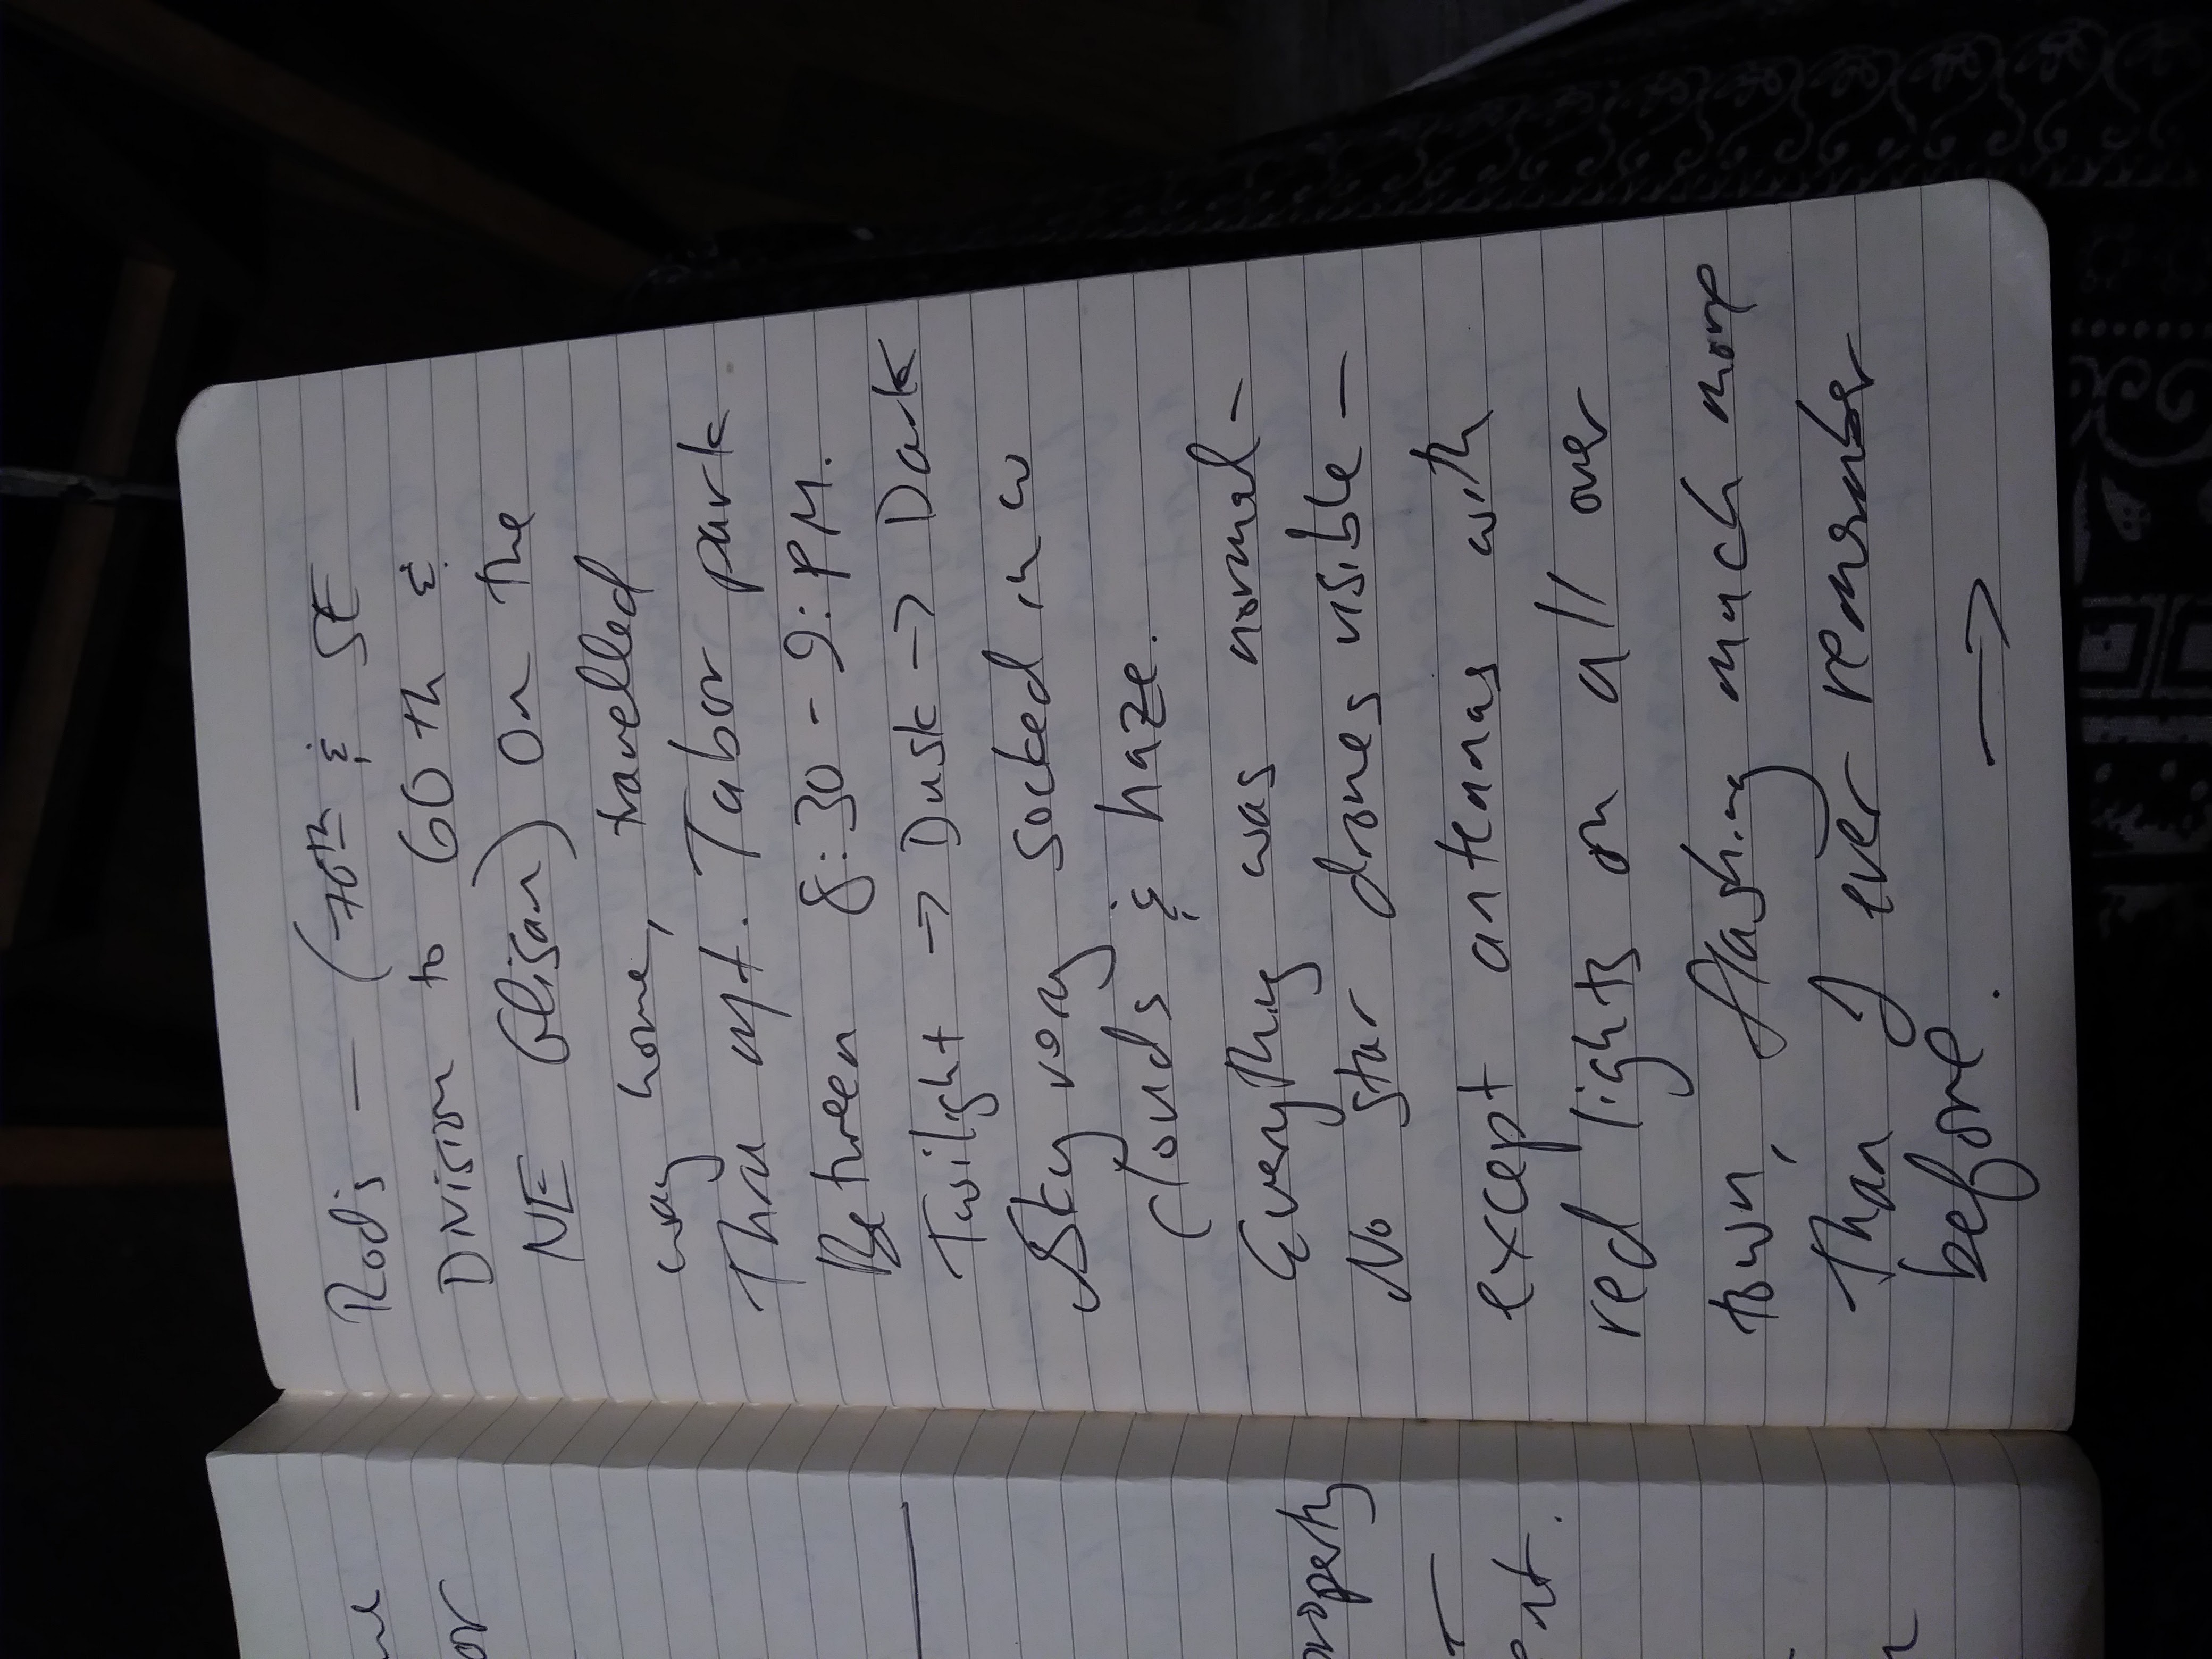 Rod's — (70th & SE
Division to 60th &
NE Glisan) On the
way home, travelled
Thru mt. Tabor park
Between 8:30 - 9: PM.
Twilight -> Dusk -> Dark
Sky very socked in w
clouds & haze.
Everything was normal -
No star drones visible -
except antennas with
red lights on all over
town, flashing much more
Than I ever remember
before. ->
property